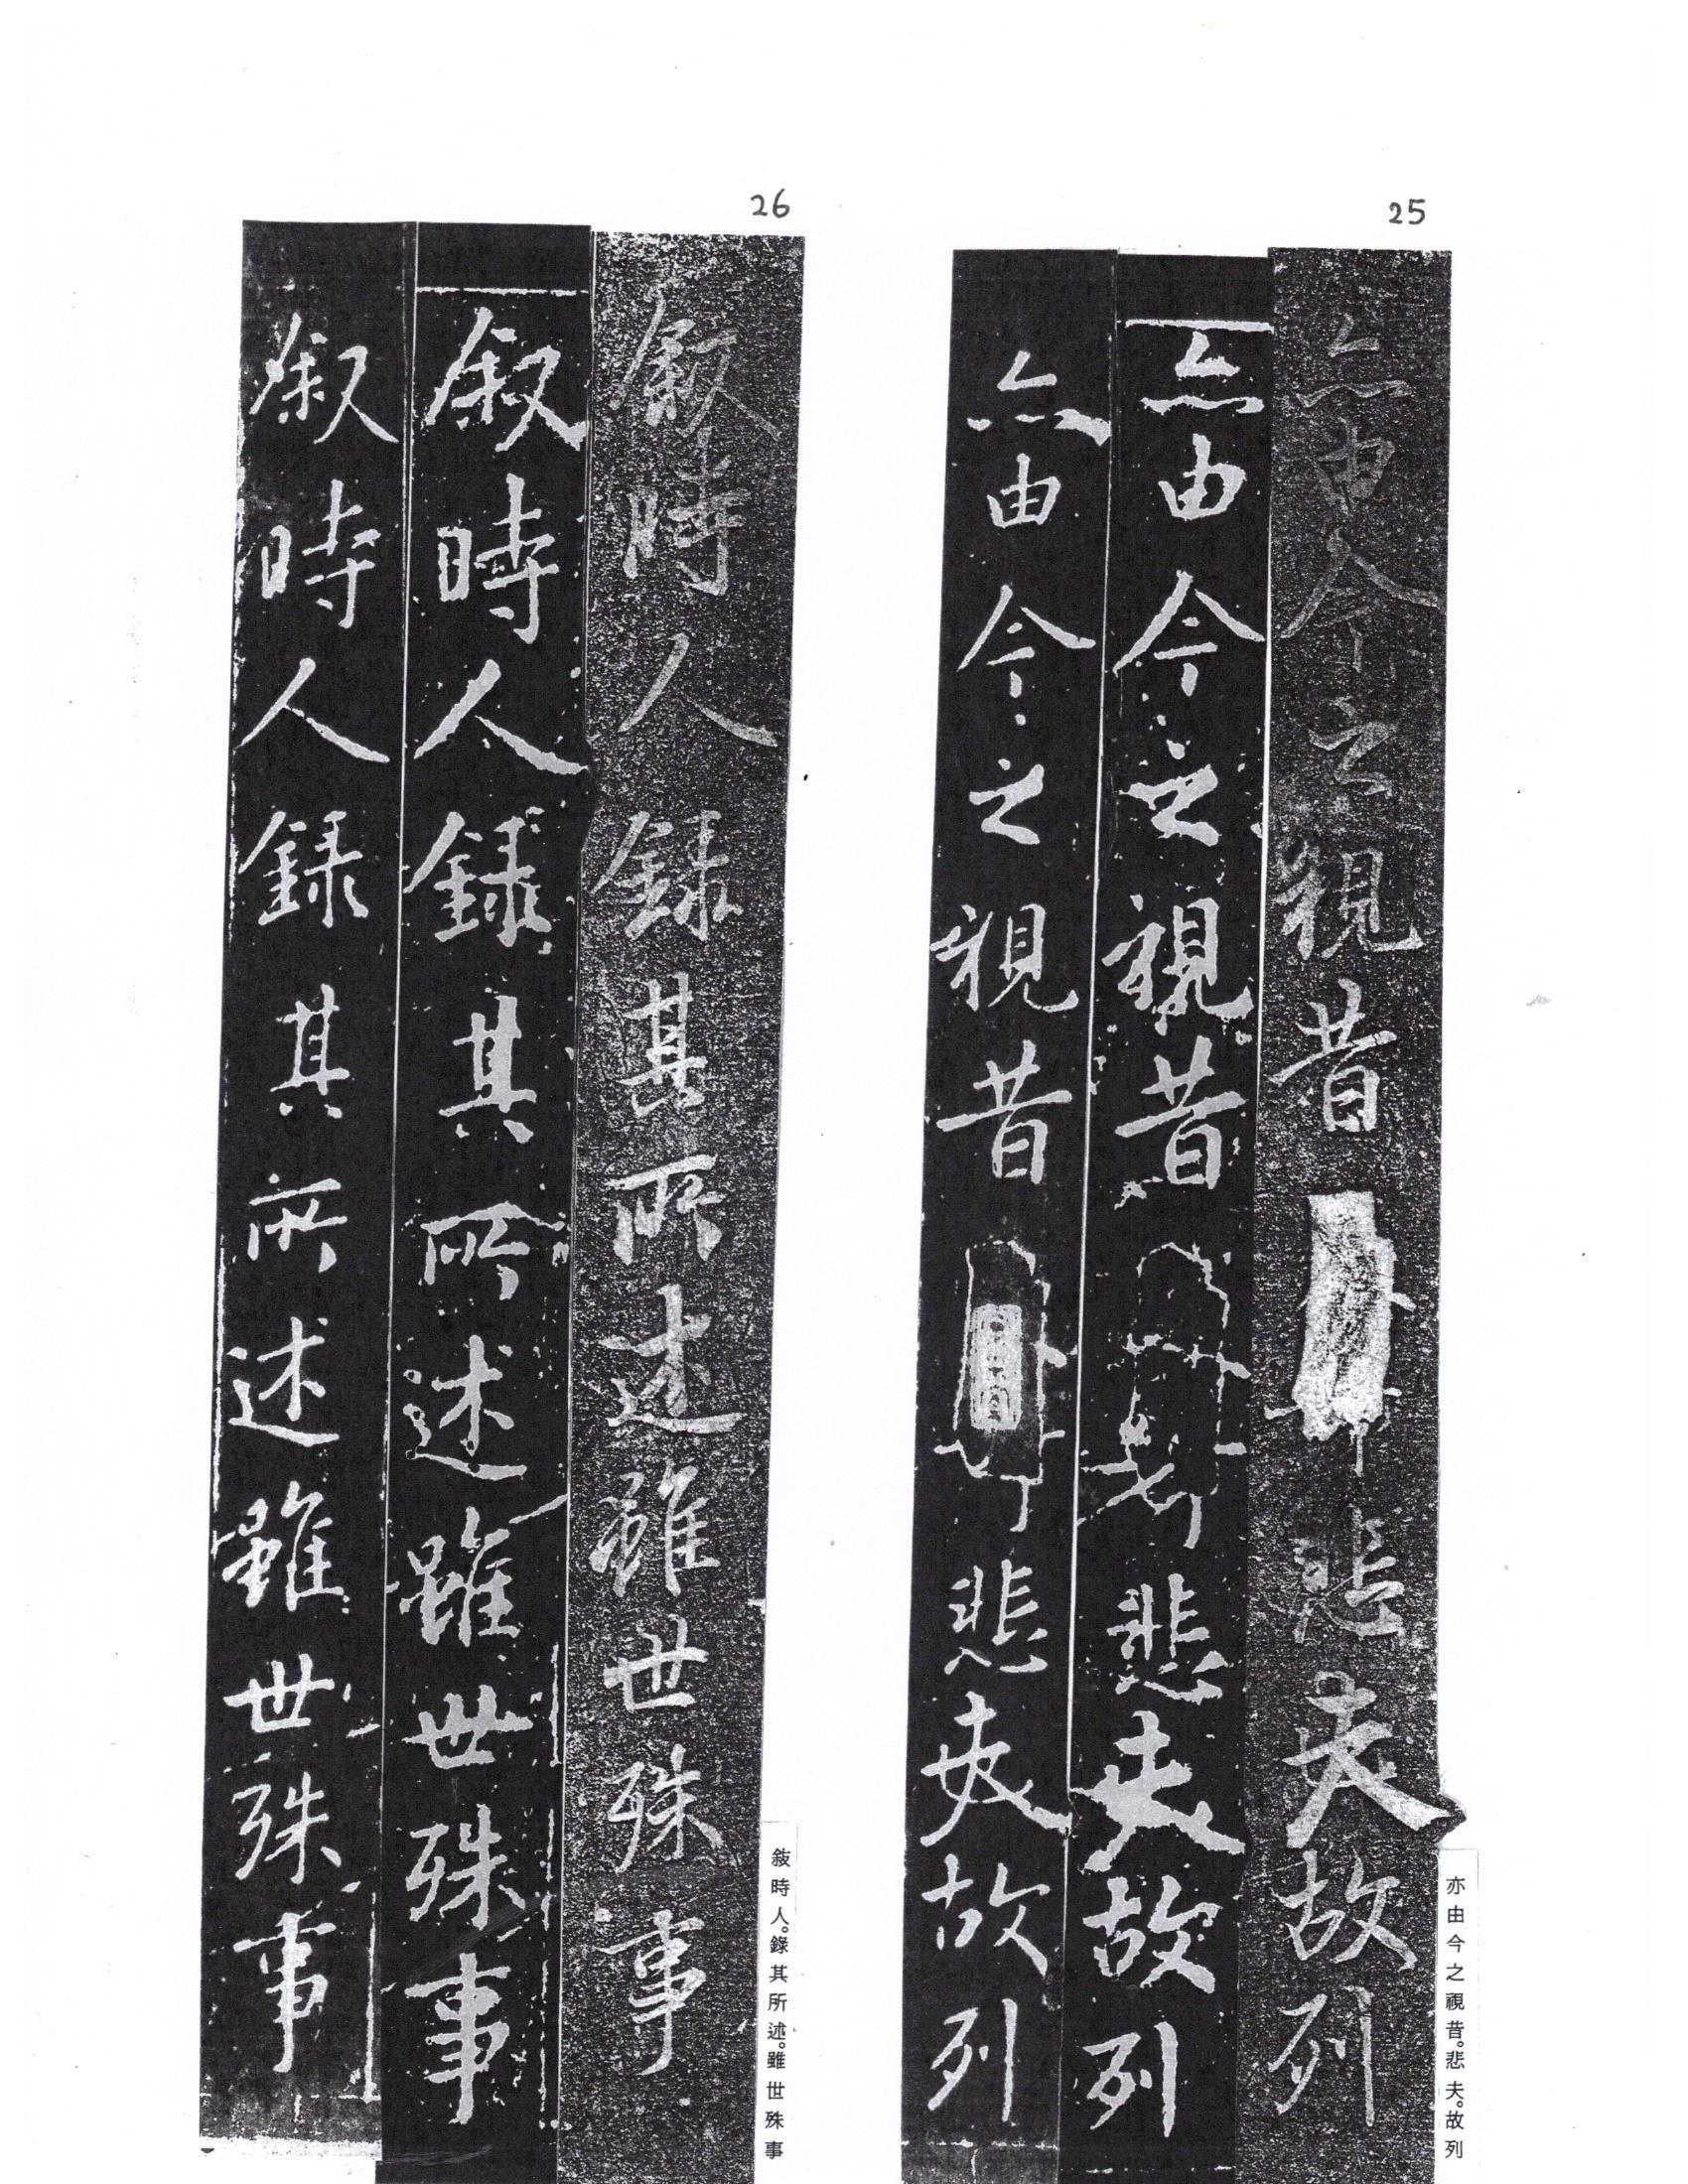 25
亦由今之視昔悲夫故列
亦由今之視昔悲夫故列
亦由今之視昔悲夫故列
亦由今之視昔。悲夫。故列
26
敘時人錄其所述雖世殊事
叙時人錄其所述雖世殊事
叙時人錄其所述雖世殊事
敍時人。錄其所述。雖世殊事